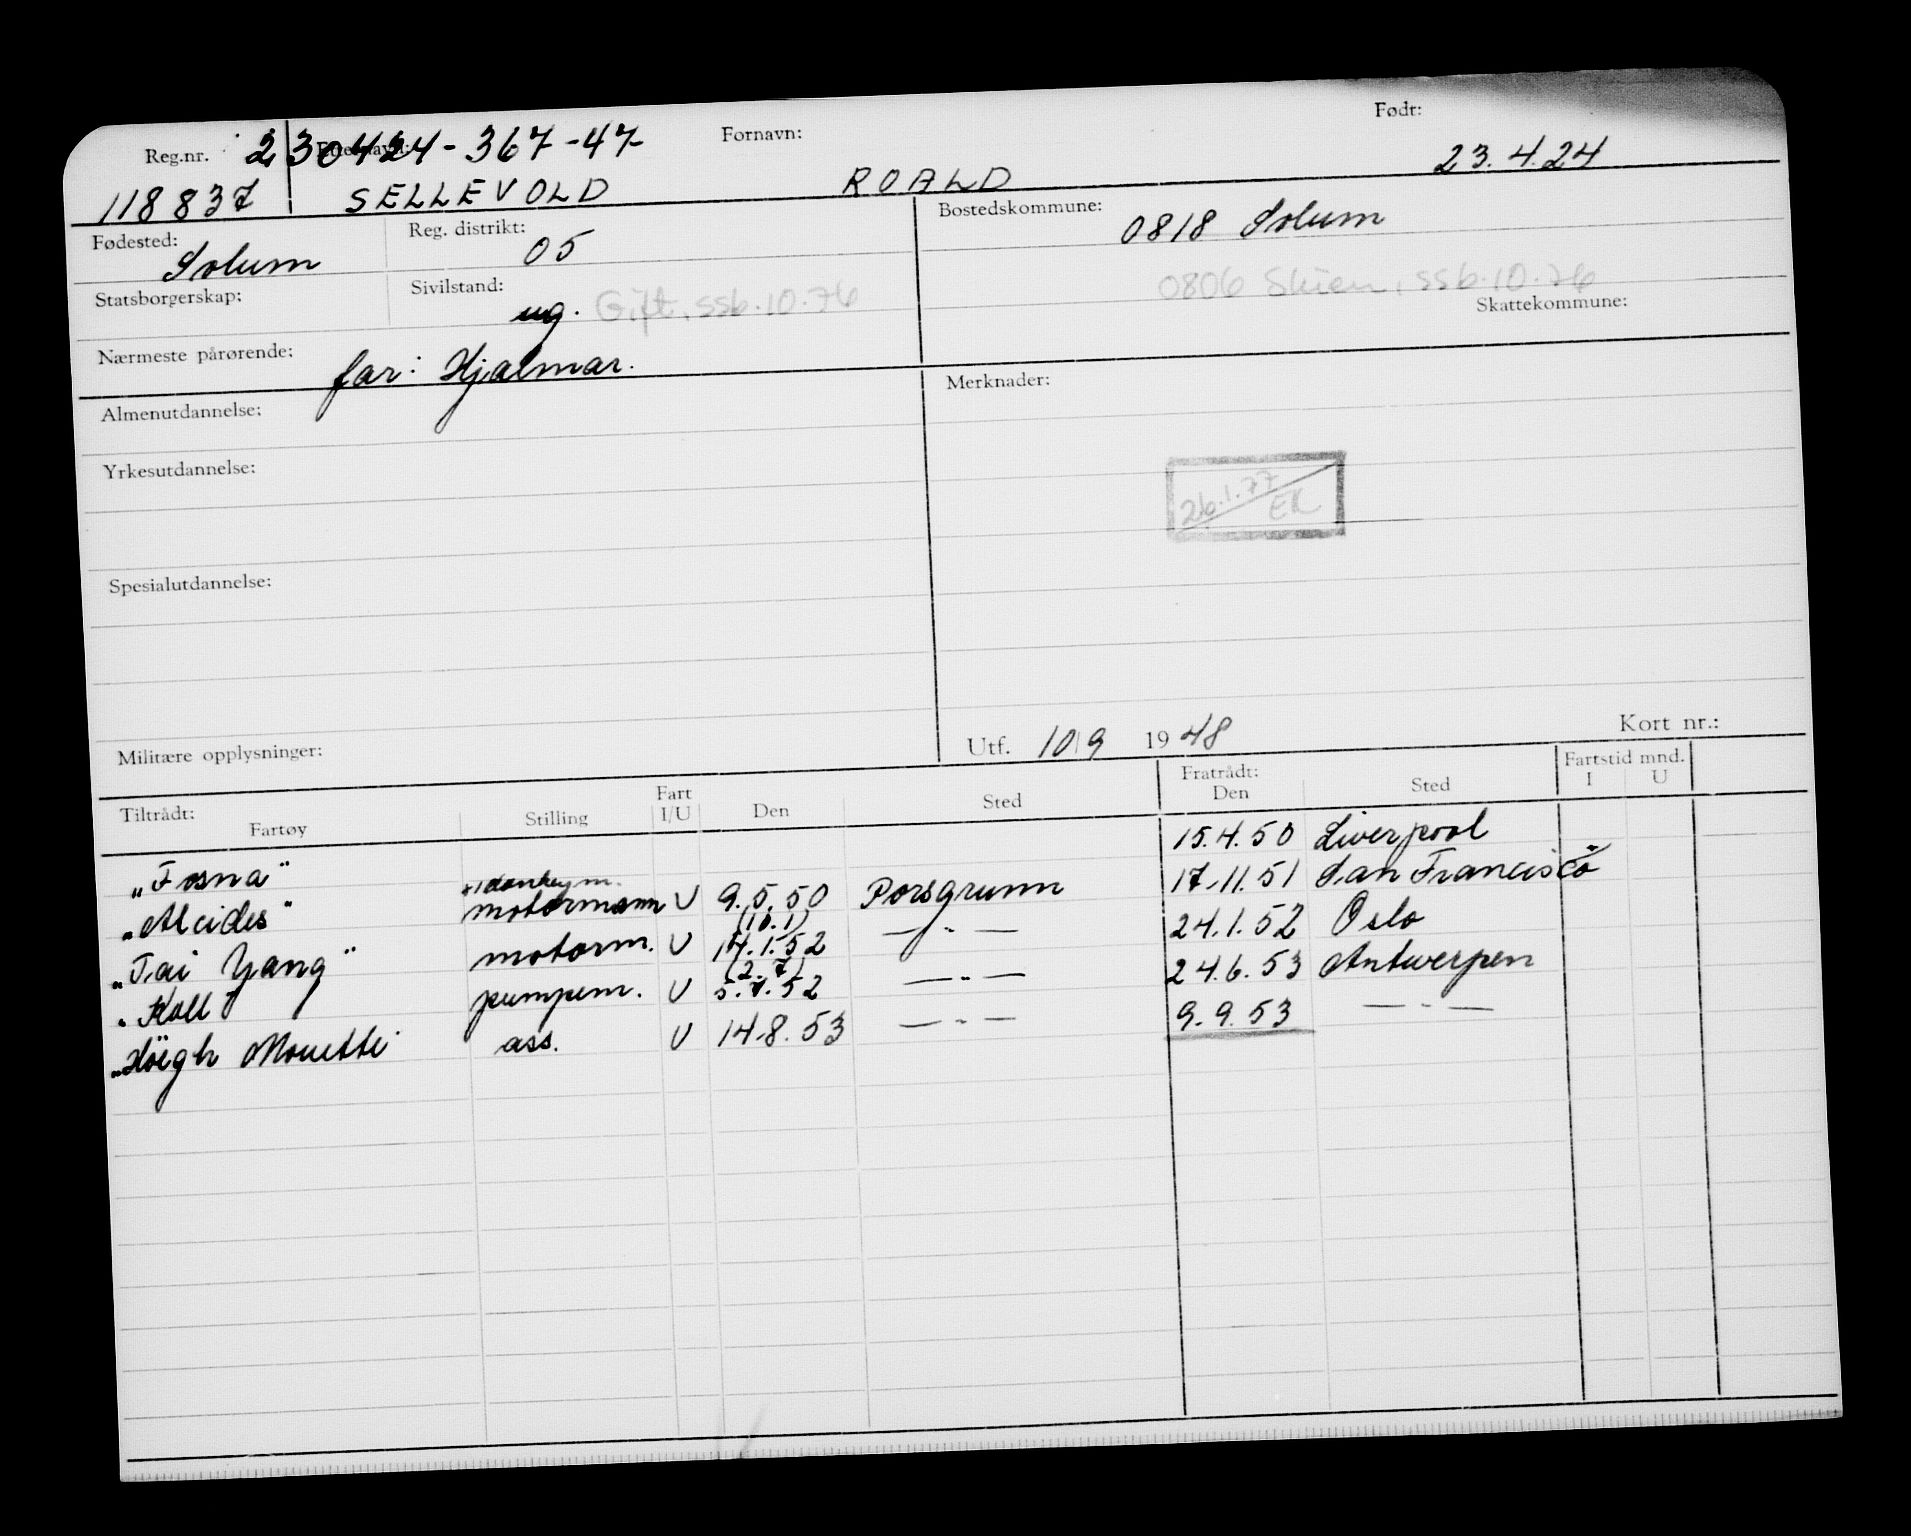 Reg.nr. 230424-367-47 Etternavn: Fornavn: Født:
118837 SELLEVOLD ROALD 23.4.24
Fødested: Solum Reg. distrikt: 05 Bostedskommune: 0818 Solum
Statsborgerskap: Sivilstand: ug. Gift, ssb.10.76 0806 Skien, ssb.10.76
Skattekommune:
Nærmeste pårørende: far: Hjalmar.
Almenutdannelse: Merknader:
Yrkesutdannelse:
26.1.77 EK
Spesialutdannelse:
Militære opplysninger: Utf. 10/9 1948 Kort nr.:
Tiltrådt: Fartøy Stilling Fart I/U Den Sted Fratrådt: Den Sted Fartstid mnd. I U
"Fosna" 15.4.50 Liverpool
"Alcides" motormann + donkeym. U 9.5.50 Porsgrunn 17.11.51 San Francisco
"Tai Yang" motorm. U (10.1) 14.1.52 — " — 24.1.52 Oslo
"Koll pumpem. U (2.7) 5.7.52 — " — 24.6.53 Antwerpen
"Höegh ass. U 14.8.53 — " — 9.9.53 — " —